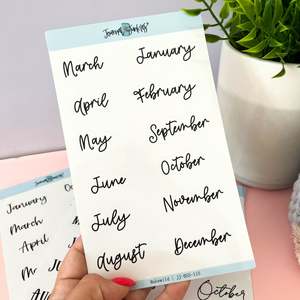 March
January
April
February
May
September
June
October
July
November
August
December
January
March
April
October